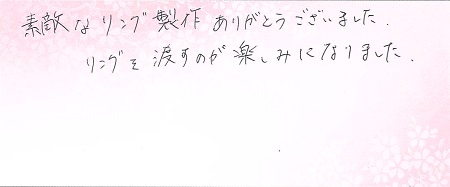 素敵なリング製作ありがとうございました.
リングを渡すのが楽しみになりました.